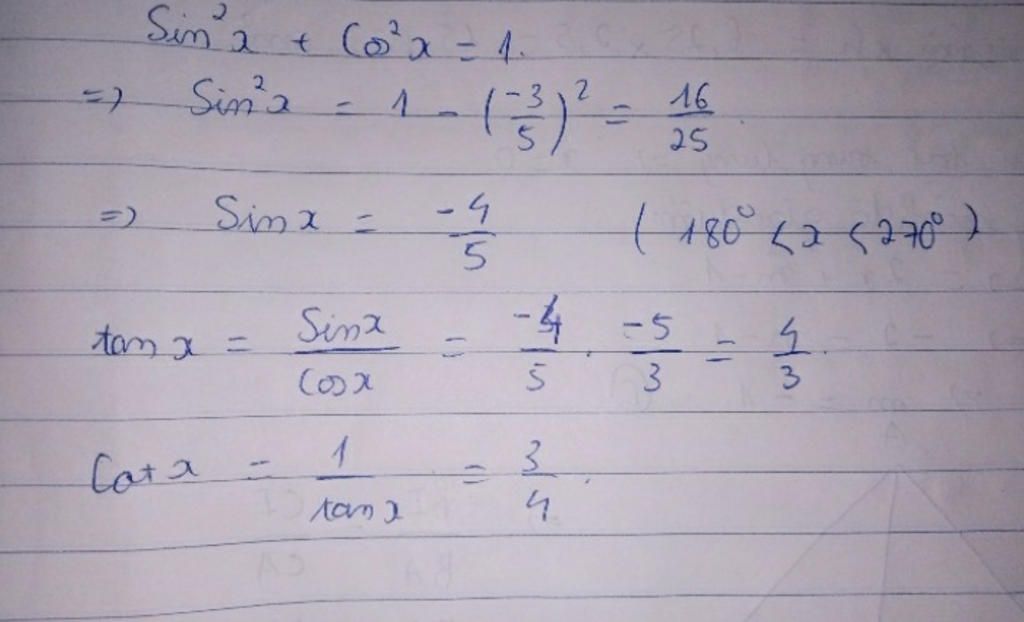 Sin²x + Cos²x = 1.
=> Sin²x = 1 - (-3/5)² = 16/25.
=> Sinx = -4/5 (180° < x < 270°)
tanx = Sinx/Cosx = -4/5 . -5/3 = 4/3.
Cotx = 1/tanx = 3/4.